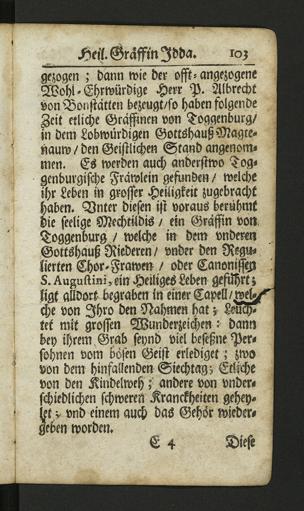 Heil. Gräffin Idda. 103
gezogen; dann wie der offt-angezogene
Wohl-Ehrwürdige Herr P. Albrecht
von Bonstätten bezeugt/so haben folgende
Zeit etliche Gräffinen von Toggenburg/
in dem Lobwürdigen Gottshauß Magte-
nauw/ den Geistlichen Stand angenom-
men. Es werden auch anderstwo Tog-
genburgische Fräwlein gefunden/ welche
ihr Leben in grosser Heiligkeit zugebracht
haben. Vnter diesen ist voraus berühmt
die seelige Mechtildis/ ein Gräffin von
Toggenburg/ welche in dem vnderen
Gottshauß Riederen/ vnder den Regu-
lierten Chor-Frawen/ oder Canonissen
S. Augustini, ein Heiliges Leben geführt;
ligt alldort begraben in einer Capell/ wel-
che von Ihro den Nahmen hat; Leuch-
tet mit grossen Wunderzeichen: dann
bey ihrem Grab seynd viel beseßne Per-
sohnen vom bösen Geist erlediget; zwo
von dem hinfallenden Siechtag; Etliche
von den Kindelweh; andere von vnder-
schiedlichen schweren Kranckheiten gehey-
let; vnd einem auch das Gehör wieder-
geben worden.
E 4 Diese